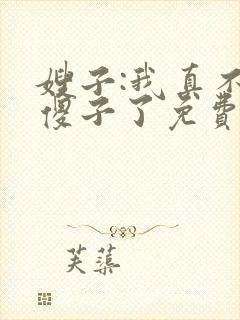 嫂子:我真不
傻子了免费
芙蕖